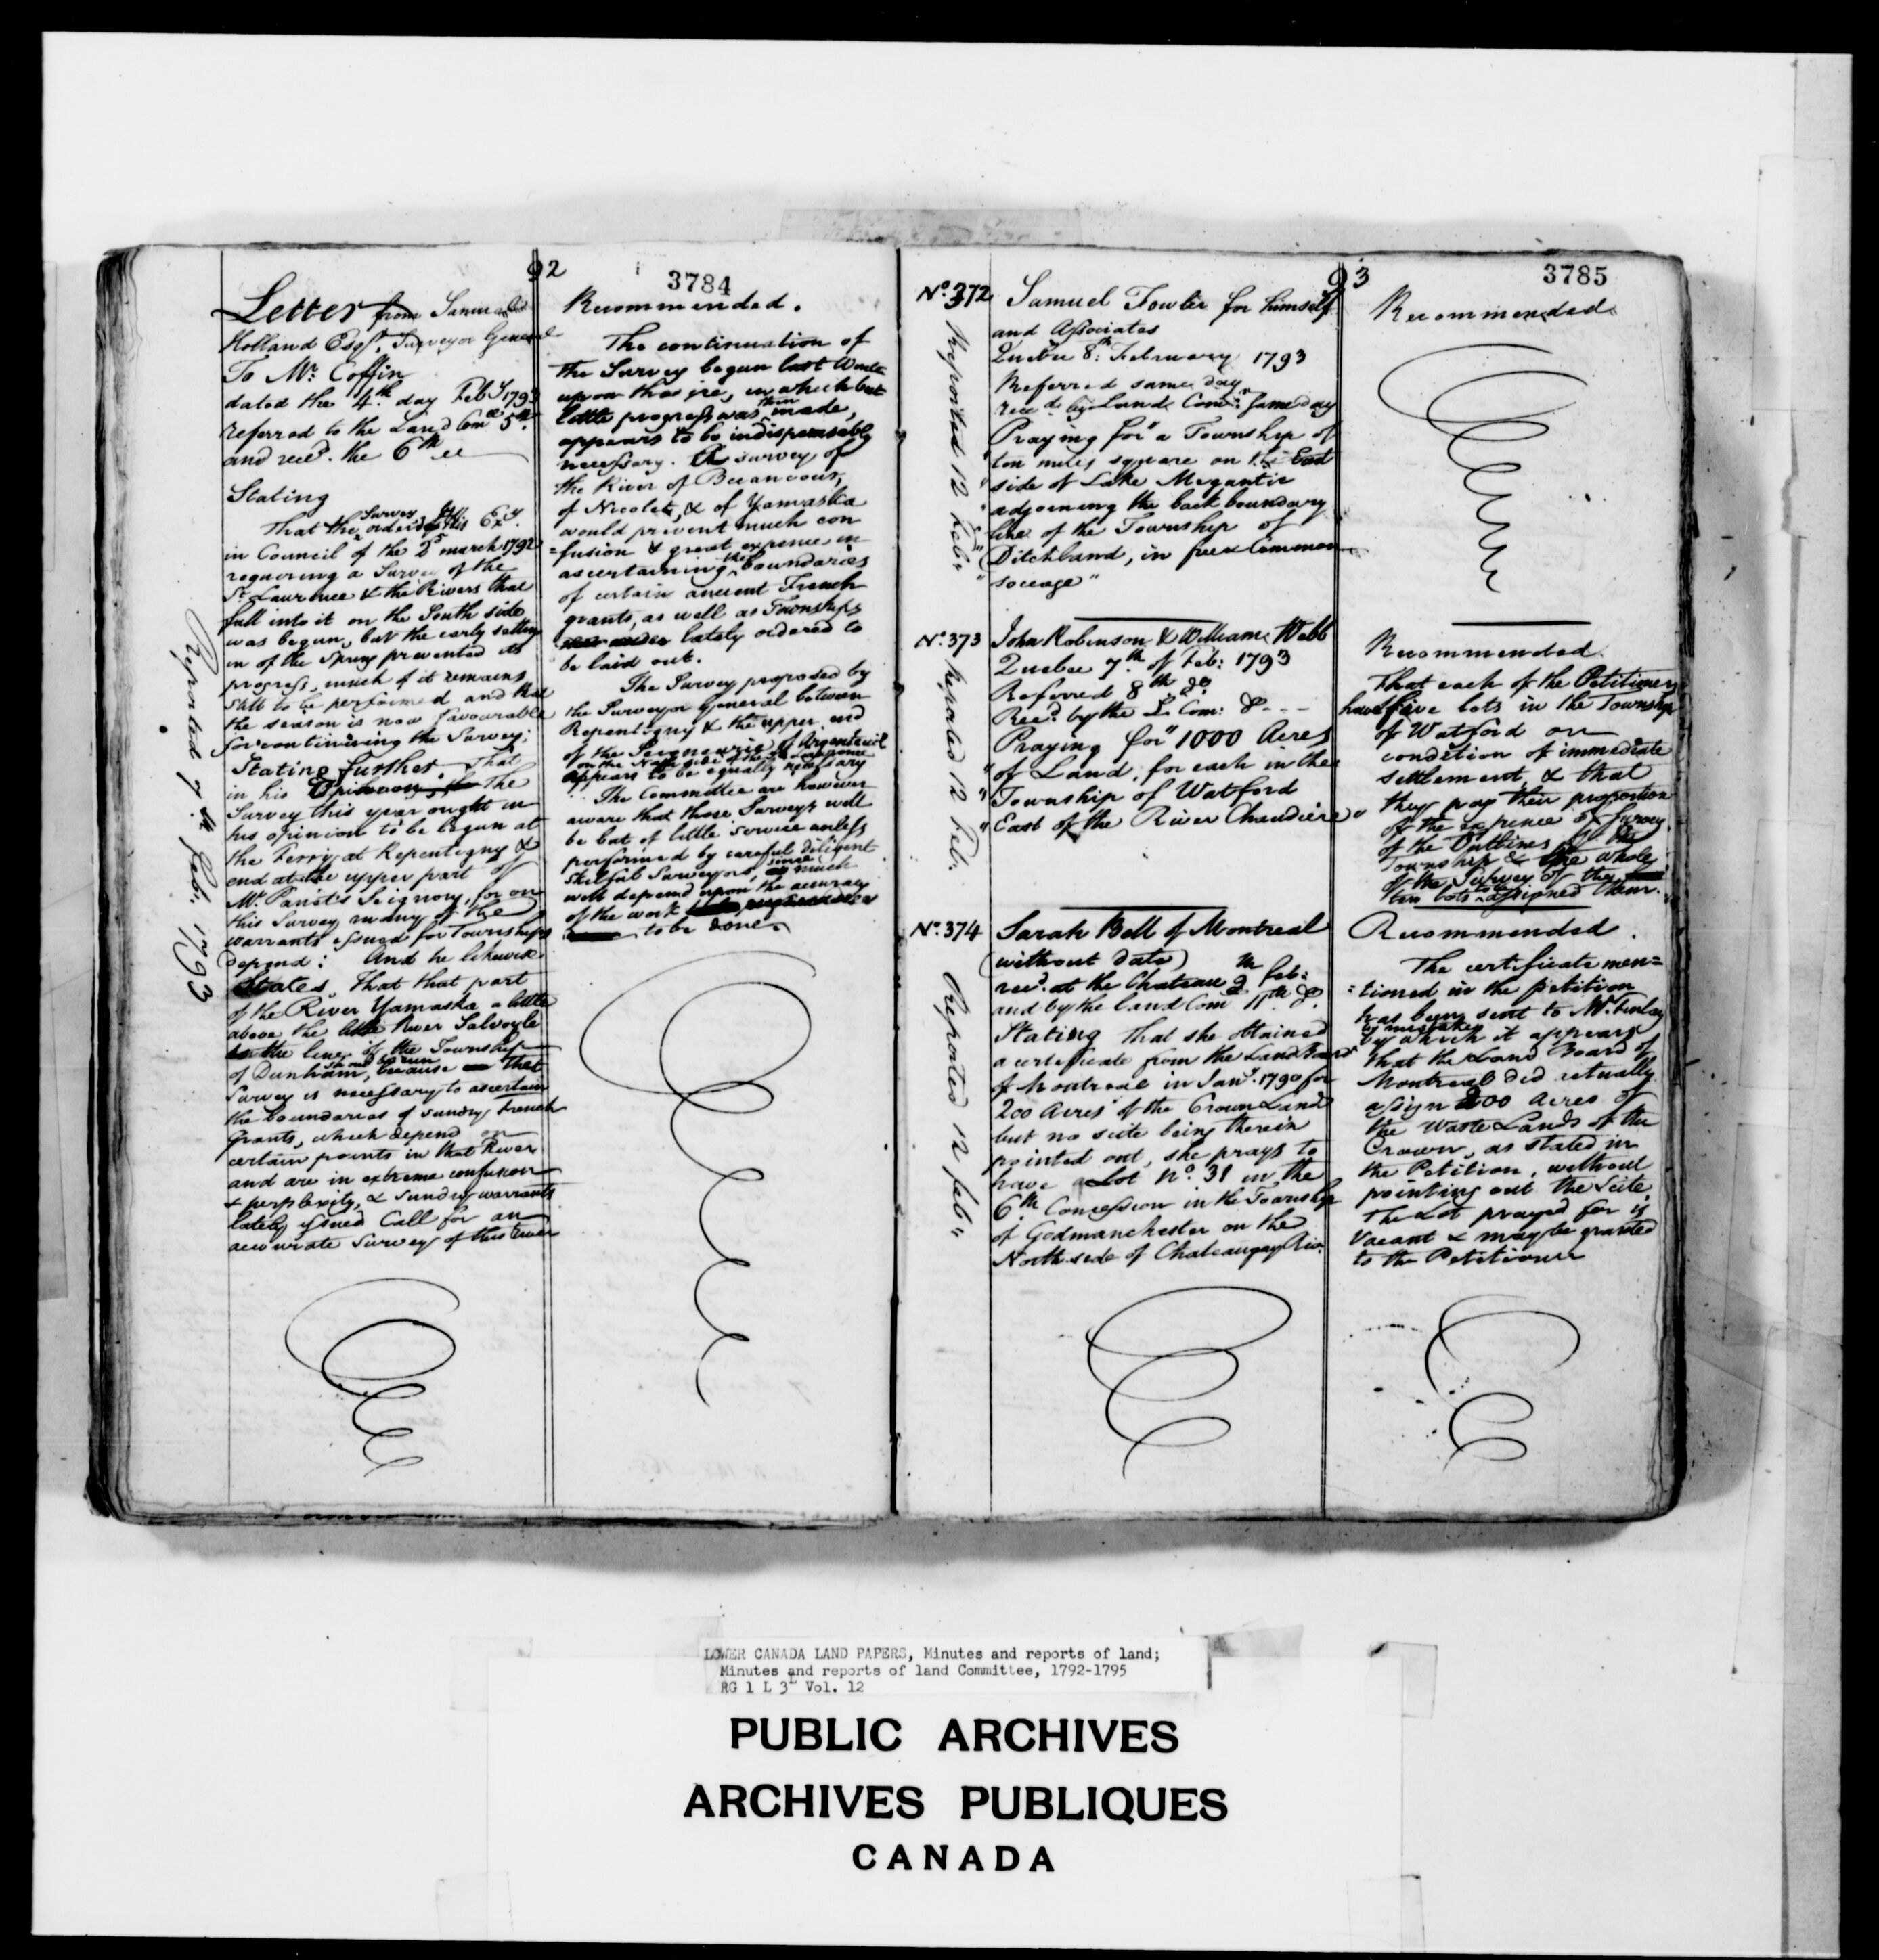 92
3784
Letter from Samuel
Holland Esqr. Surveyor General
To Mr. Coffin
dated the 4th day Feby 1793
referred to the Land Com 5th
and recd. the 6th
Stating
That the Survey ordered by His Exy.
in Council of the 2d march 1792
requiring a Survey of the
St. Laurence & the Rivers that
fall into it on the South side
was begun, but the early setting
in of the Spring prevented its
progress, much of it remains
still to be performed and that
the season is now favourable
for continuing the Survey;
Stating further, That
in his Opinion, the The
Survey this year ought in
his opinion to be begun at
the Ferry at Repentigny &
end at the upper part of
Mr. Panet's Seignory, for on
this Survey many of the
warrants issued for Townships
depend: And he likewise
States, That that part
of the River Yamaska a little
above the little River Salvoyle
to the lines of the Township
of Dunham, should be run because that
Survey is necessary to ascertain
the boundaries of sundry French
Grants, which depend on
certain points in that River
and are in extreme confusion
& perplexity, & sundry warrants
lately issued Call for an
accurate Survey of this River
Reported 7th Feb. 1793
Recommended.
The continuation of
the Survey begun last Winter
upon this ice, in which but
little progress was then made,
appears to be indispensably
necessary. The survey of
the River of Becancour,
of Nicolet, & of Yamaska
would prevent much con
=fusion & great expence in
ascertaining the boundaries
of certain ancient French
grants, as well as Townships
lately ordered to
be laid out.
The Survey proposed by
the Surveyor General between
Repentigny & the upper end
of the Seigneurie of Argenteuil
on the North side of the
appears to be equally necessary
The Committee are however
aware that those Surveys will
be but of little service unless
performed by careful diligent
skilful Surveyors, since much
will depend upon the accuracy
of the work
to be done.
93
3785
No. 372
Reported 12 Feb.
Samuel Fowler for himself
and Associates
Quebec 8th February 1793
Referred same day
recd. by Land Com: same day
Praying for "a Township of
"ten miles square on the East
"side of Lake Megantic
"adjoining the back boundary
"line of the Township of
"Ditchland, in free & Common
"soccage"
Recommended.
No. 373
Reported 12 Feb.
John Robinson & William Webb
Quebec 7th of Feb: 1793
Referred 8th do.
Recd. by the L. Com: 8 - - -
Praying for "1000 Acres
"of Land, for each in the
"Township of Watford
"East of the River Chaudiere"
Recommended.
That each of the Petitioners
have five lots in the Township
of Watford on
condition of immediate
settlement, & that
they pay their proportion
of the expence of Survey
of the Outlines of the
Township & the whole
of the Survey of the
ten lots to be assigned them.
No. 374
Reported 12 feb.
Sarah Bell of Montreal
(without date)
recd. at the Chateau 9th feb:
and by the land Com 11th do.
Stating That she obtained
a certificate from the Land Board
of Montreal in Jany. 1790 for
200 Acres of the Crown Lands
but no scite being therein
pointed out, she prays to
have a Lot No. 31 in the
6th Concession in the Township
of Godmanchester on the
North side of Chateaugay Riv.
Recommended.
The certificate men=
=tioned in the petition
has being sent to Mr. Finlay
by mistake
by which it appears
that the Land Board of
Montreal did actually
assign 200 Acres of
the Waste Lands of the
Crown, as stated in
the Petition, without
pointing out the Scite.
The Lot prayed for is
Vacant & may be granted
to the Petitioner
LOWER CANADA LAND PAPERS, Minutes and reports of land;
Minutes and reports of land Committee, 1792-1795
RG 1 L 3L Vol. 12
PUBLIC ARCHIVES
ARCHIVES PUBLIQUES
CANADA